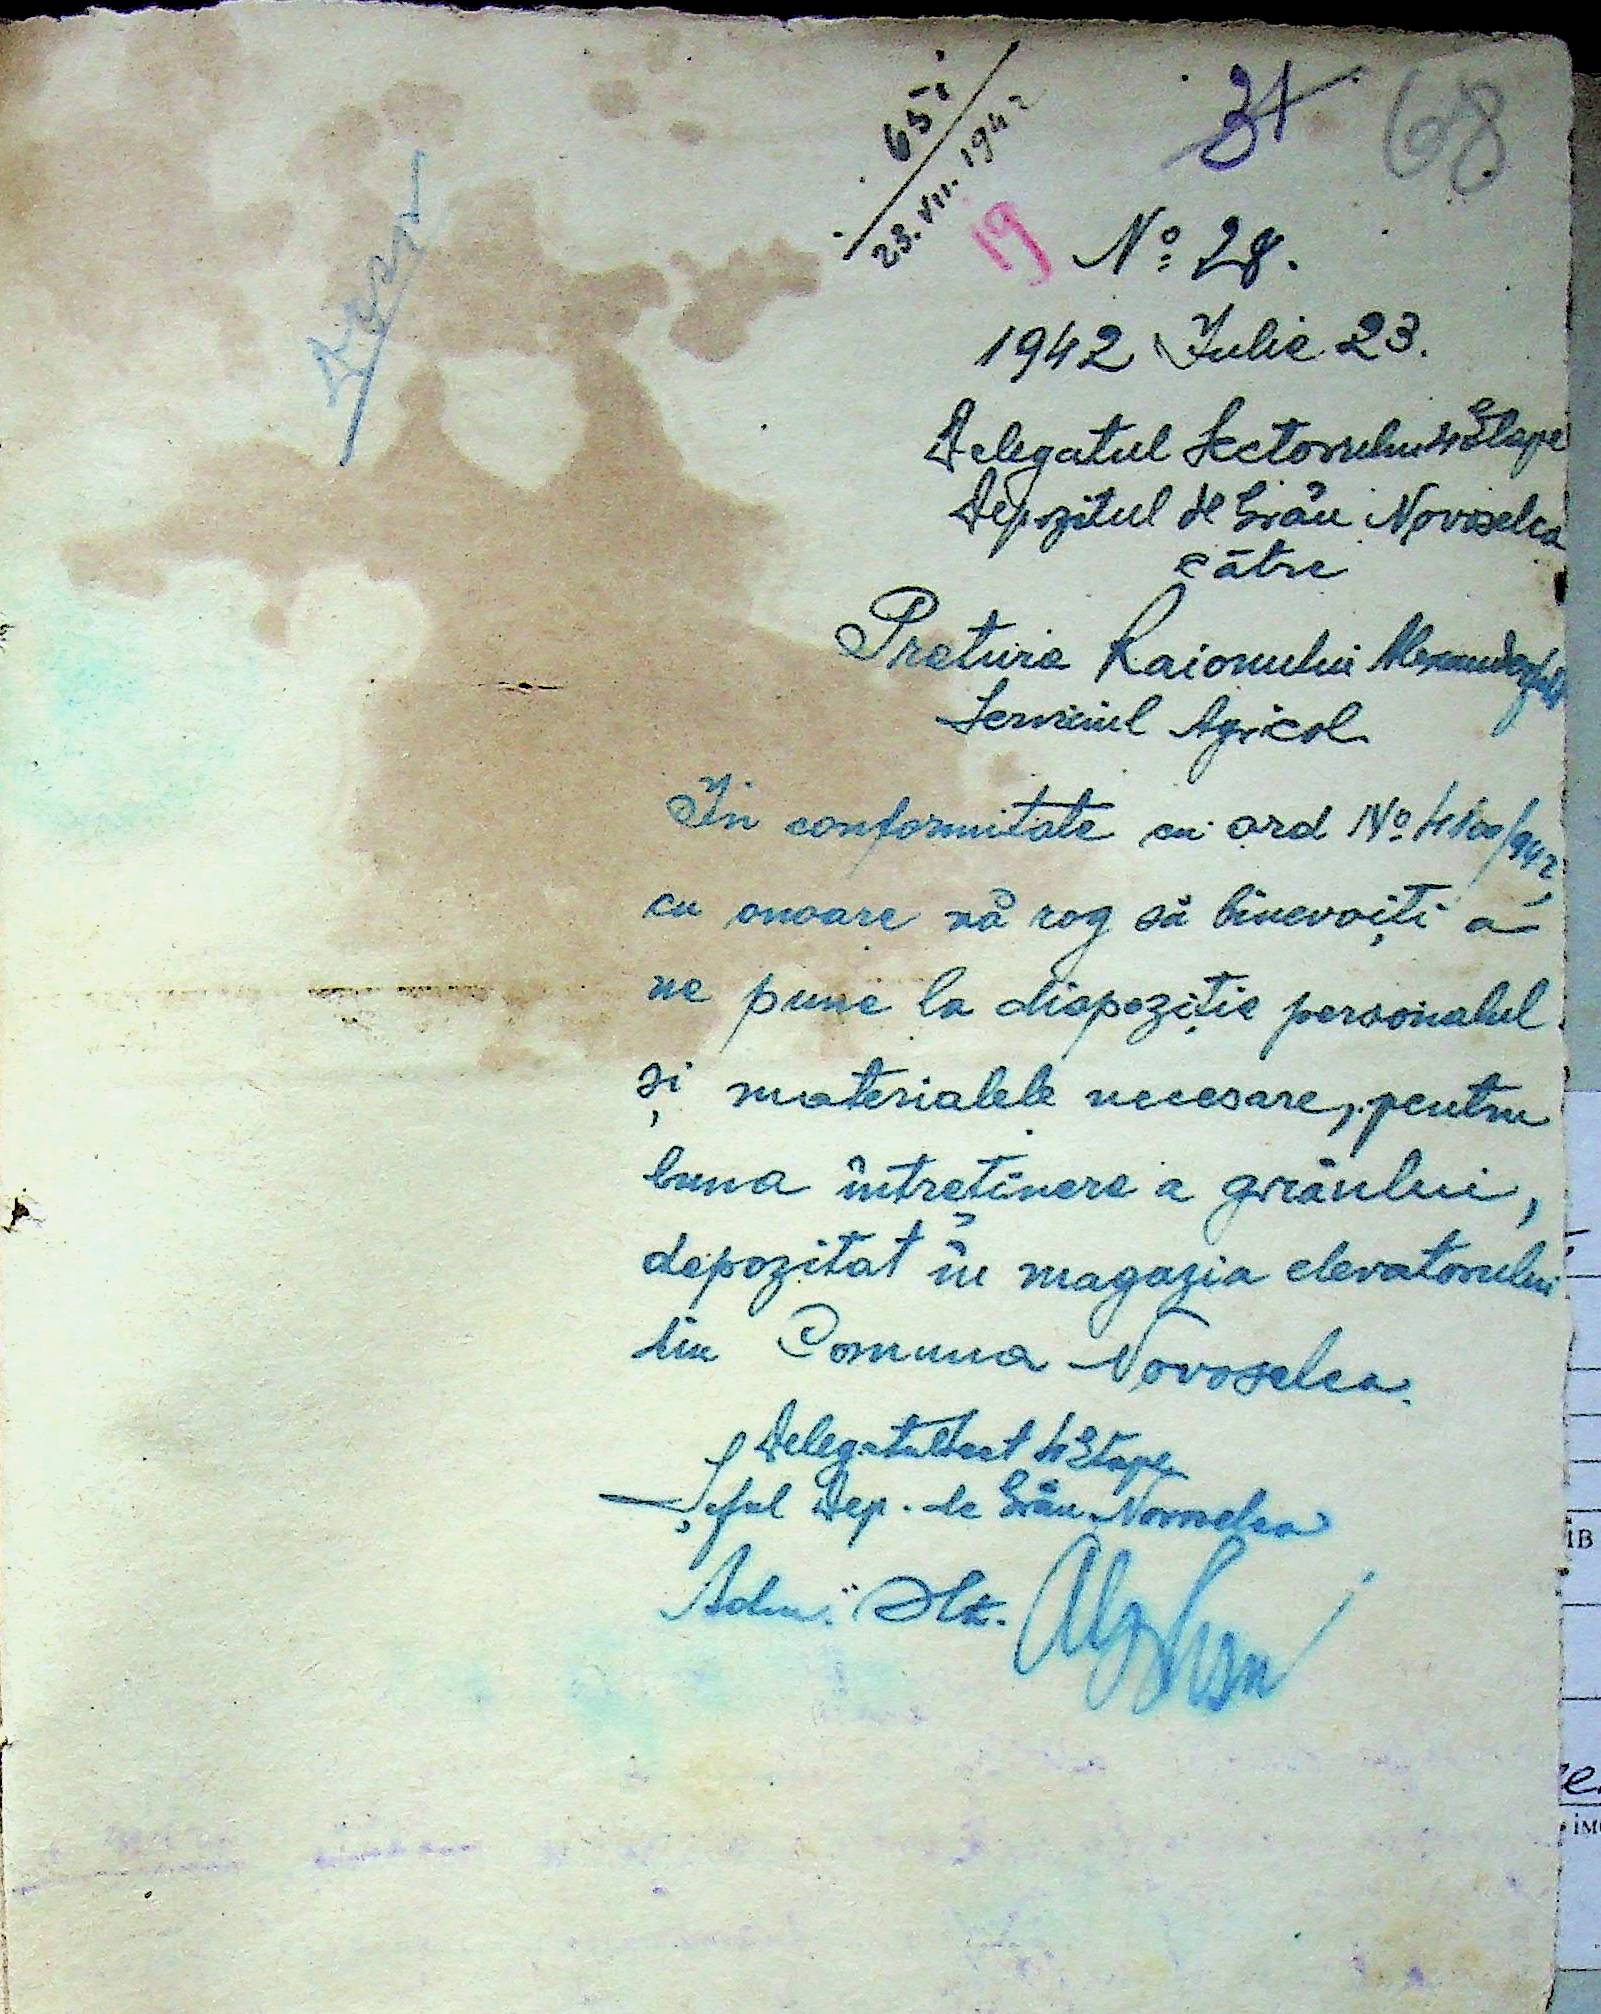 651
23. VII. 1942
31 68
19
Nº 28.
1942 Iulie 23.
Delegatul Sectorului 4 Etape
Depozitul de Grâu Novoselca
către
Pretura Raionului
Serviciul Agricol
In conformitate cu ord Nº 4100/942,
cu onoare vă rog să binevoiți a
ne pune la dispoziție personalul
și materialele necesare, pentru
buna întreținere a grâului,
depozitat în magazia elevatorului
din Comuna Novoselca.
Delegatul Sect 4 Etape
Șeful Dep. de Grâu Novoselca
Adm.